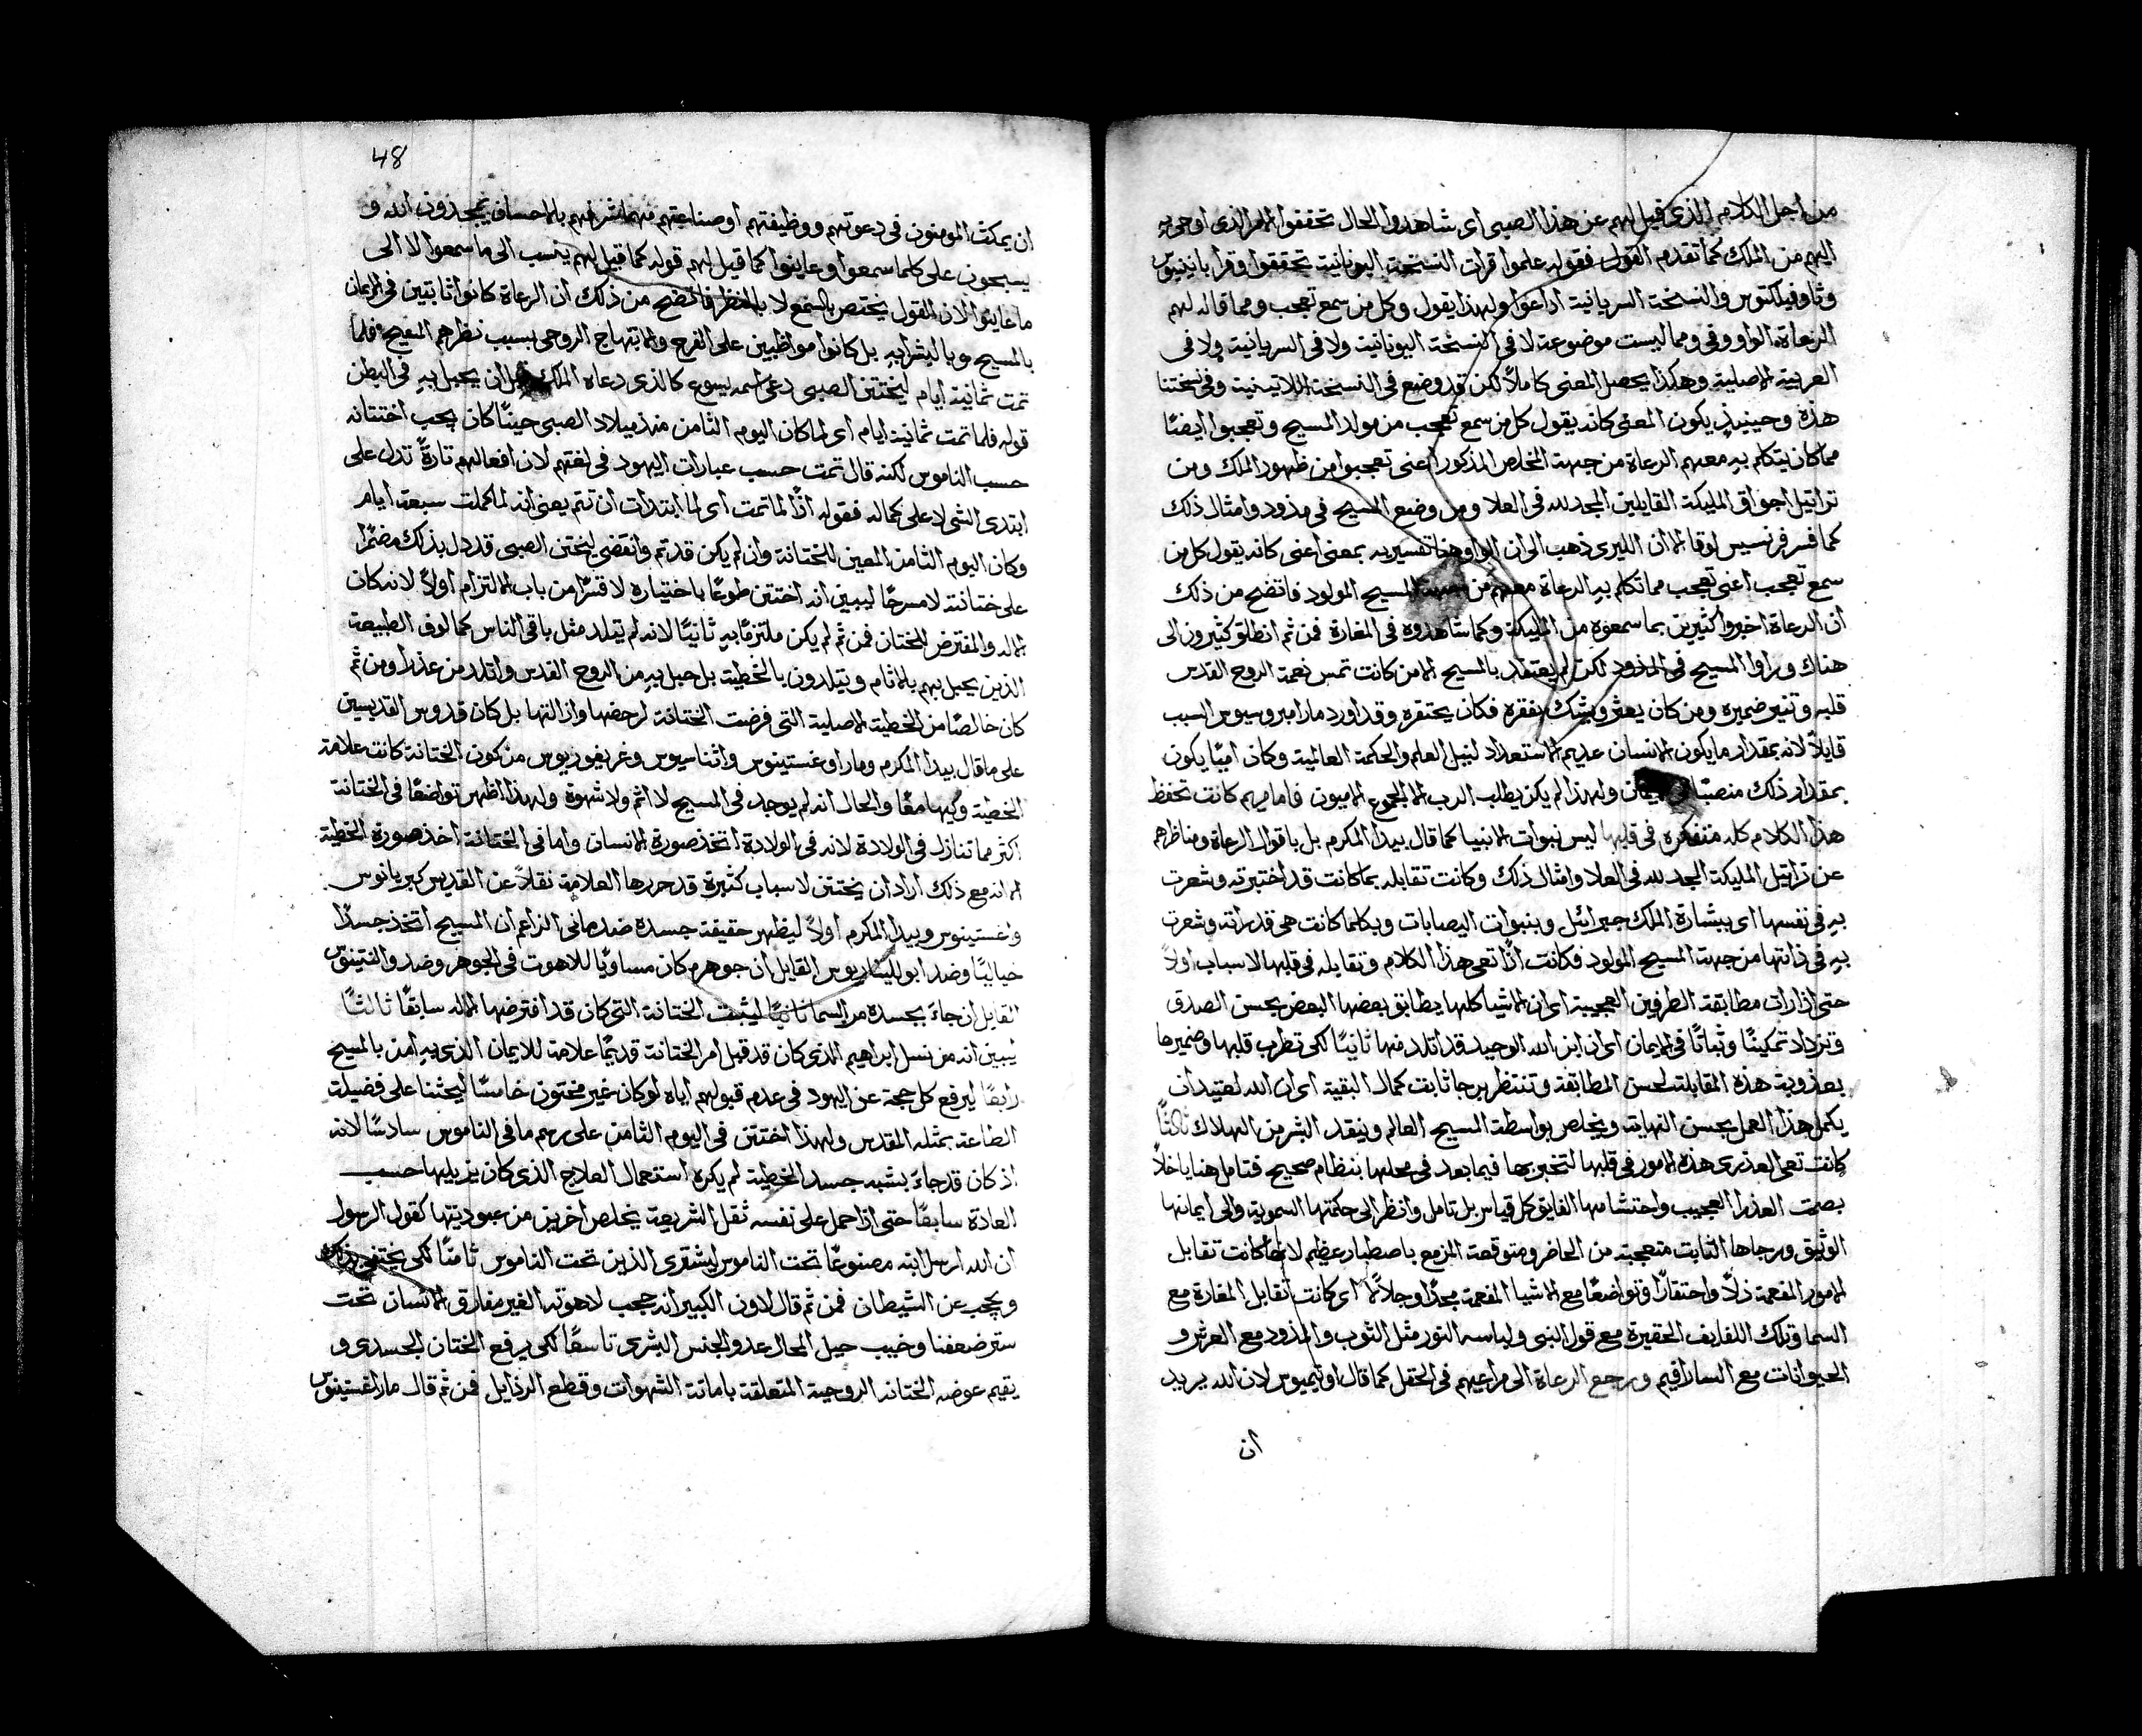 من اجل الكلام الذى قيل لهم عن هذا الصبى اى شاهدوا الحال تحققوا الامر الذى اوحى به
اليهم من الملاك كما تقدم القول فقوله علموا قرات النسخة اليونانية تحققوا وقرا باتينيوس
وثاوفيلكتوس والنسخة السريانية اداعوا ولهذا يقول وكل من سمع تعجب ومما قاله لهم
الرعاة الواو وفى ومما ليست موضوعة لا فى النسخة اليونانية ولا فى السريانية ولا فى
العربية الاصلية وهكذا يحصل المعنى كاملاً لكن قد وضع فى النسخة اللاتينية وفى نسختنا
هذه وحينيذٍ يكون المعنى كانه يقول كل من سمع تعجب من مولد المسيح وتعجبوا ايضًا
مما كان يتكلم به معهم الرعاة من جهة المخلص المذكور اعنى تعجبوا من ظهور الملاك ومن
تراتيل اجواق المليكة القايلين المجد لله فى العلا ومن وضع المسيح فى مذود وامثال ذلك
كما فسر فرنسيس لوقا الا ان الليرى ذهب الى ان الواو هنا تفسيريه بمعنى اعنى كانه يقول كل من
سمع تعجب اعنى تعجب مما تكلم به الرعاة معهم من جهة المسيح المولود فاتضح من ذلك
ان الرعاة اخبروا كثيرين بما سمعوه من المليكة وكما شاهدوه فى المغارة فمن ثم انطلق كثيرون الى
هناك وراوا المسيح فى المذود لكن لم يعتقد بالمسيح الا من كانت تمس نعمة الروح القدس
قلبه وتنير ضميره ومن كان يعثر ويشك بفقره فكان يحتقره وقد اورد مار امبروسيوس السبب
قايلاً لانه بمقدار ما يكون الانسان عديم الاستعداد لنيل العلم والحكمة العالمية وكان اميًا يكون
بمقدار ذلك منصبًا ولهذا لم يكن يطلب الرب الا الجموع الاميون فاما مريم كانت تحفظ
هذا الكلام كله متفكره فى قلبها ليس نبوات الانبيا كما قال بيدا المكرم بل باقوال الرعاة ومناظرهم
عن تراتيل المليكة المجد لله فى العلا وامثال ذلك وكانت تقابله بما كانت قد اختبرته وشعرت
به فى نفسها اى ببشارة الملاك جبرائيل وبنبوات اليصابات وبكلما كانت هى قد راته وشعرت
به فى ذاتها من جهة المسيح المولود فكانت اذًا تعى هذا الكلام وتقابله فى قلبها لاسباب اولاً
حتى اذا رات مطابقة الطرفين العجيبة اى ان الاشيا كلها يطابق بعضها البعض بحسن الصدق
وتزداد تمكينًا وثباتًا فى الايمان اى ان ابن الله الوحيد قد اتلد منها ثانيًا لكى تطرب قلبها وضميرها
بعذوبة هذه المقابلة لحسن المطابقة وتنتظر برجا ثابت كمال البقية اى ان الله لعتيد ان
يكمل هذا العمل بحسن النهاية ويخلص بواسطة المسيح العالم وينقد البشر من الهلاك ثالثًا
كانت تعى العذرى هذه الامور فى قلبها لتخبر بها فيما بعد فى محلها بنظام صحيح فتامل هنا ياخلا
بصمت العذرا العجيب واحتشامها الفايق كل قياس بل تامل وانظر الى حكمتها السموية والى ايمانها
الوثيق ورجاها الثابت متعجبة من الحاضر ومتوقعة المزمع باصطبار عظيم لانها كانت تقابل
الامور المفعمة ذلاً واحتقارًا وتواضعًا مع الاشيا المفعمة مجدًا وجلالاً اى كانت تقابل المغارة مع
السما وتلك اللفايف الحقيرة مع قول النبى ولباسه النور مثل الثوب والمذود مع العرش و
الحيوانات مع السارافيم ورجع الرعاة الى مراعيهم فى الحقل كما قال اوتيميوس لان الله يريد
ان
48
ان يمكث المومنون فى دعوتهم ووظيفتهم او صناعتهم مهما شرفهم بالاحسان يمجدون الله و
يسبحون على كلما سمعوا وعاينوا كما قيل لهم قوله كما قيل لهم ينسب الى ما سمعوا لا الى
ما عاينوا لان القول يختص بالسمع لا بالنظر فاتضح من ذلك ان الرعاة كانوا ثابتين فى الايمان
بالمسيح وبالبشرايه بل كانوا مواظبين على الفرح والابتهاج الروحى بسبب نظرهم المسيح فلما
تمت ثمانية ايام ليختتن الصبى دعى اسمه يسوع كالذى دعاه الملاك قبل ان يحبل به فى البطن
قوله فلما تمت ثمانية ايام اى لما كان اليوم الثامن منذ ميلاد الصبى حينًا كان يجب اختتانه
حسب الناموس لكنه قال تمت حسب عبارات اليهود فى لغتهم لان افعالهم تارةً تدل على
ابتدى الشى لا على كماله فقوله اذًا لما تمت اى لما ابتدات ان تتم يعنى انه لما كملت سبعة ايام
وكان اليوم الثامن المعين للختانة وان لم يكن قد تم وانقضى ليختن الصبى قد دل بذلك مضمرًا
على ختانته لا مسرحًا ليبين انه اختتن طوعًا باختياره لا قسرًا من باب الالتزام اولاً لانه كان
الاله والمفترض للختان فمن ثم لم يكن ملتزمًا به ثانيًا لانه لم يتلد مثل باقى الناس كمالوف الطبيعة
الذين يحبل بهم بالاثام ويتلدون بالخطية بل حبل به من الروح القدس واتلد من عذرا ومن ثم
كان خالصًا من الخطية الاصلية التى فرضت الختانة لرحضها وازالتها بل كان قدوس القديسين
على ما قال بيدا المكرم ومار اوغستينوس واثناسيوس وغريغوريوس من كون الختانة كانت علامة
الخطية وكيها معًا والحال انه لم يوجد فى المسيح لا اثم ولا شهوة ولهذا اظهر تواضعًا فى الختانة
اكثر مما تنازل فى الولادة لانه فى الولادة اتخذ صورة الانسان واما فى الختانة اخذ صورة الخطية
الا انه مع ذلك اراد ان يختتن لاسباب كثيرة قد حررها العلامة نقلاً عن القديس كبريانوس
واغستينوس وبيدا المكرم اولاً ليظهر حقيقة جسده ضد مانى الزاعم ان المسيح اتخذ جسدًا
خياليًا وضد ابوليناريوس القايل ان جوهره كان مساويًا للاهوت فى الجوهر وضد والنتينوس
القايل ان جاء بجسده من السما ثانيًا ليثبت الختانة التى كان قد افترضها الاله سابقًا ثالثًا
ليبين انه من نسل ابراهيم الذى كان قد قبل امر الختانة قديمًا علامة للايمان الذى به امن بالمسيح
رابعًا ليرفع كل حجة عن اليهود فى عدم قبولهم اياه لو كان غير مختون خامسًا ليحثنا على فضيلة
الطاعة بمثله المقدس ولهذا اختتن فى اليوم الثامن على رسم ما فى الناموس سادسًا لانه
اذ كان قد جاء بشبه جسد الخطية لم يكره استعمال العلاج الذى كان يزيلها حسب
العادة سابعًا حتى اذا حمل على نفسه ثقل الشريعة يخلص اخرين من عبوديتها كقول الرسول
ان الله ارسل ابنه مصنوعًا تحت الناموس ليشترى الذين تحت الناموس ثامنًا لكى يختفى بذلك
ويحجب عن الشيطان فمن ثم قال لاون الكبير انه حجب لاهوته الغير مفارق الانسان تحت
ستر ضعفنا وخيب حيل المحال عدو الجنس البشرى تاسعًا لكى يرفع الختان الجسدى و
يقيم عوضه الختانه الروحية المتعلقة باماتة الشهوات وقطع الرذايل فمن ثم قال مار اغستينوس